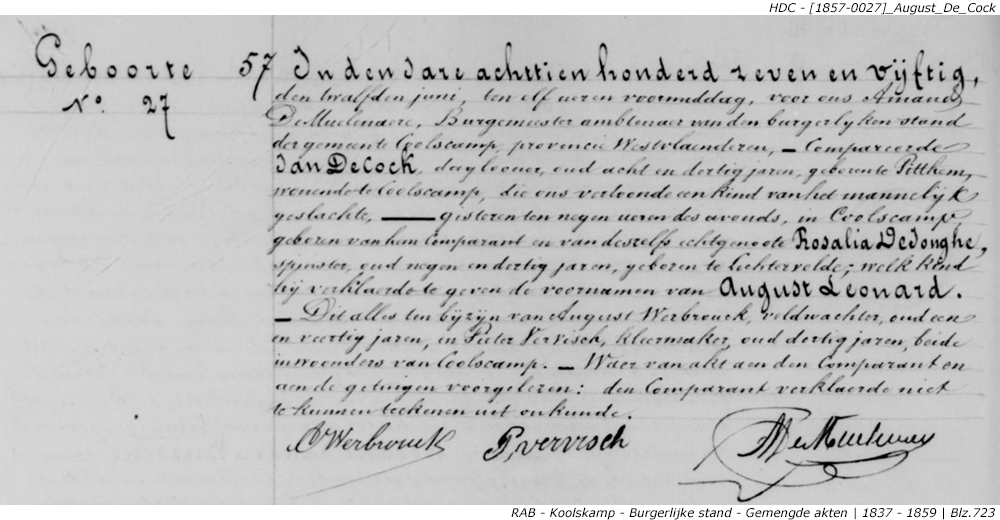 HDC - [1857-0027]_August_De_Cock
Geboorte 57 In den Jare achttien honderd zeven en vijftig,
N.º 27
den twalfden juni, ten elf ueren voormiddag, voor ons Amand
De Muelenaere, Burgemeester ambtenaer van den burgerlyken stand
der gemeente Coolscamp, provincie Westvlaenderen, — Compareerde
Jan De Cock, daglooner, oud acht en dertig jaren, geboren te Pitthem,
wonende te Coolscamp, die ons vertoonde een kind van het mannelijk
geslachte, — gisteren ten negen ueren des avonds, in Coolscamp
geboren van hem Comparant en van deszelfs echtgenoote Rosalia Dejonghe,
spinster, oud negen en dertig jaren, geboren te Lichtervelde; welk kind
hij verklaerde te geven de voornamen van August Leonard.
— Dit alles ten bijzijn van August Werbrouck, veldwachter, oud een
en veertig jaren, en Pieter Vervisch, kleermaker, oud dertig jaren, beide
inwooners van Coolscamp. — Waer van akt aen den Comparant en
aen de getuigen voorgelezen: den Comparant verklaerde niet
te kunnen teekenen uit onkunde.
AWerbrouck P, vervisch ADeMuelenaere
RAB - Koolskamp - Burgerlijke stand - Gemengde akten | 1837 - 1859 | Blz.723